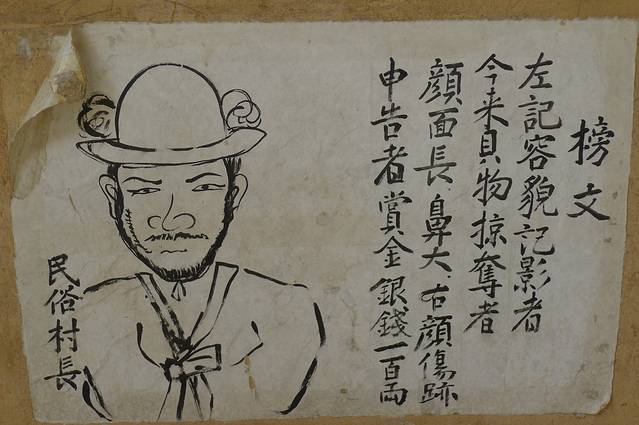 榜文
左記容貌記影者
今来貟物掠奪者
顔面長、鼻大、右顔傷跡
申告者賞金銀錢一百両
民俗村長